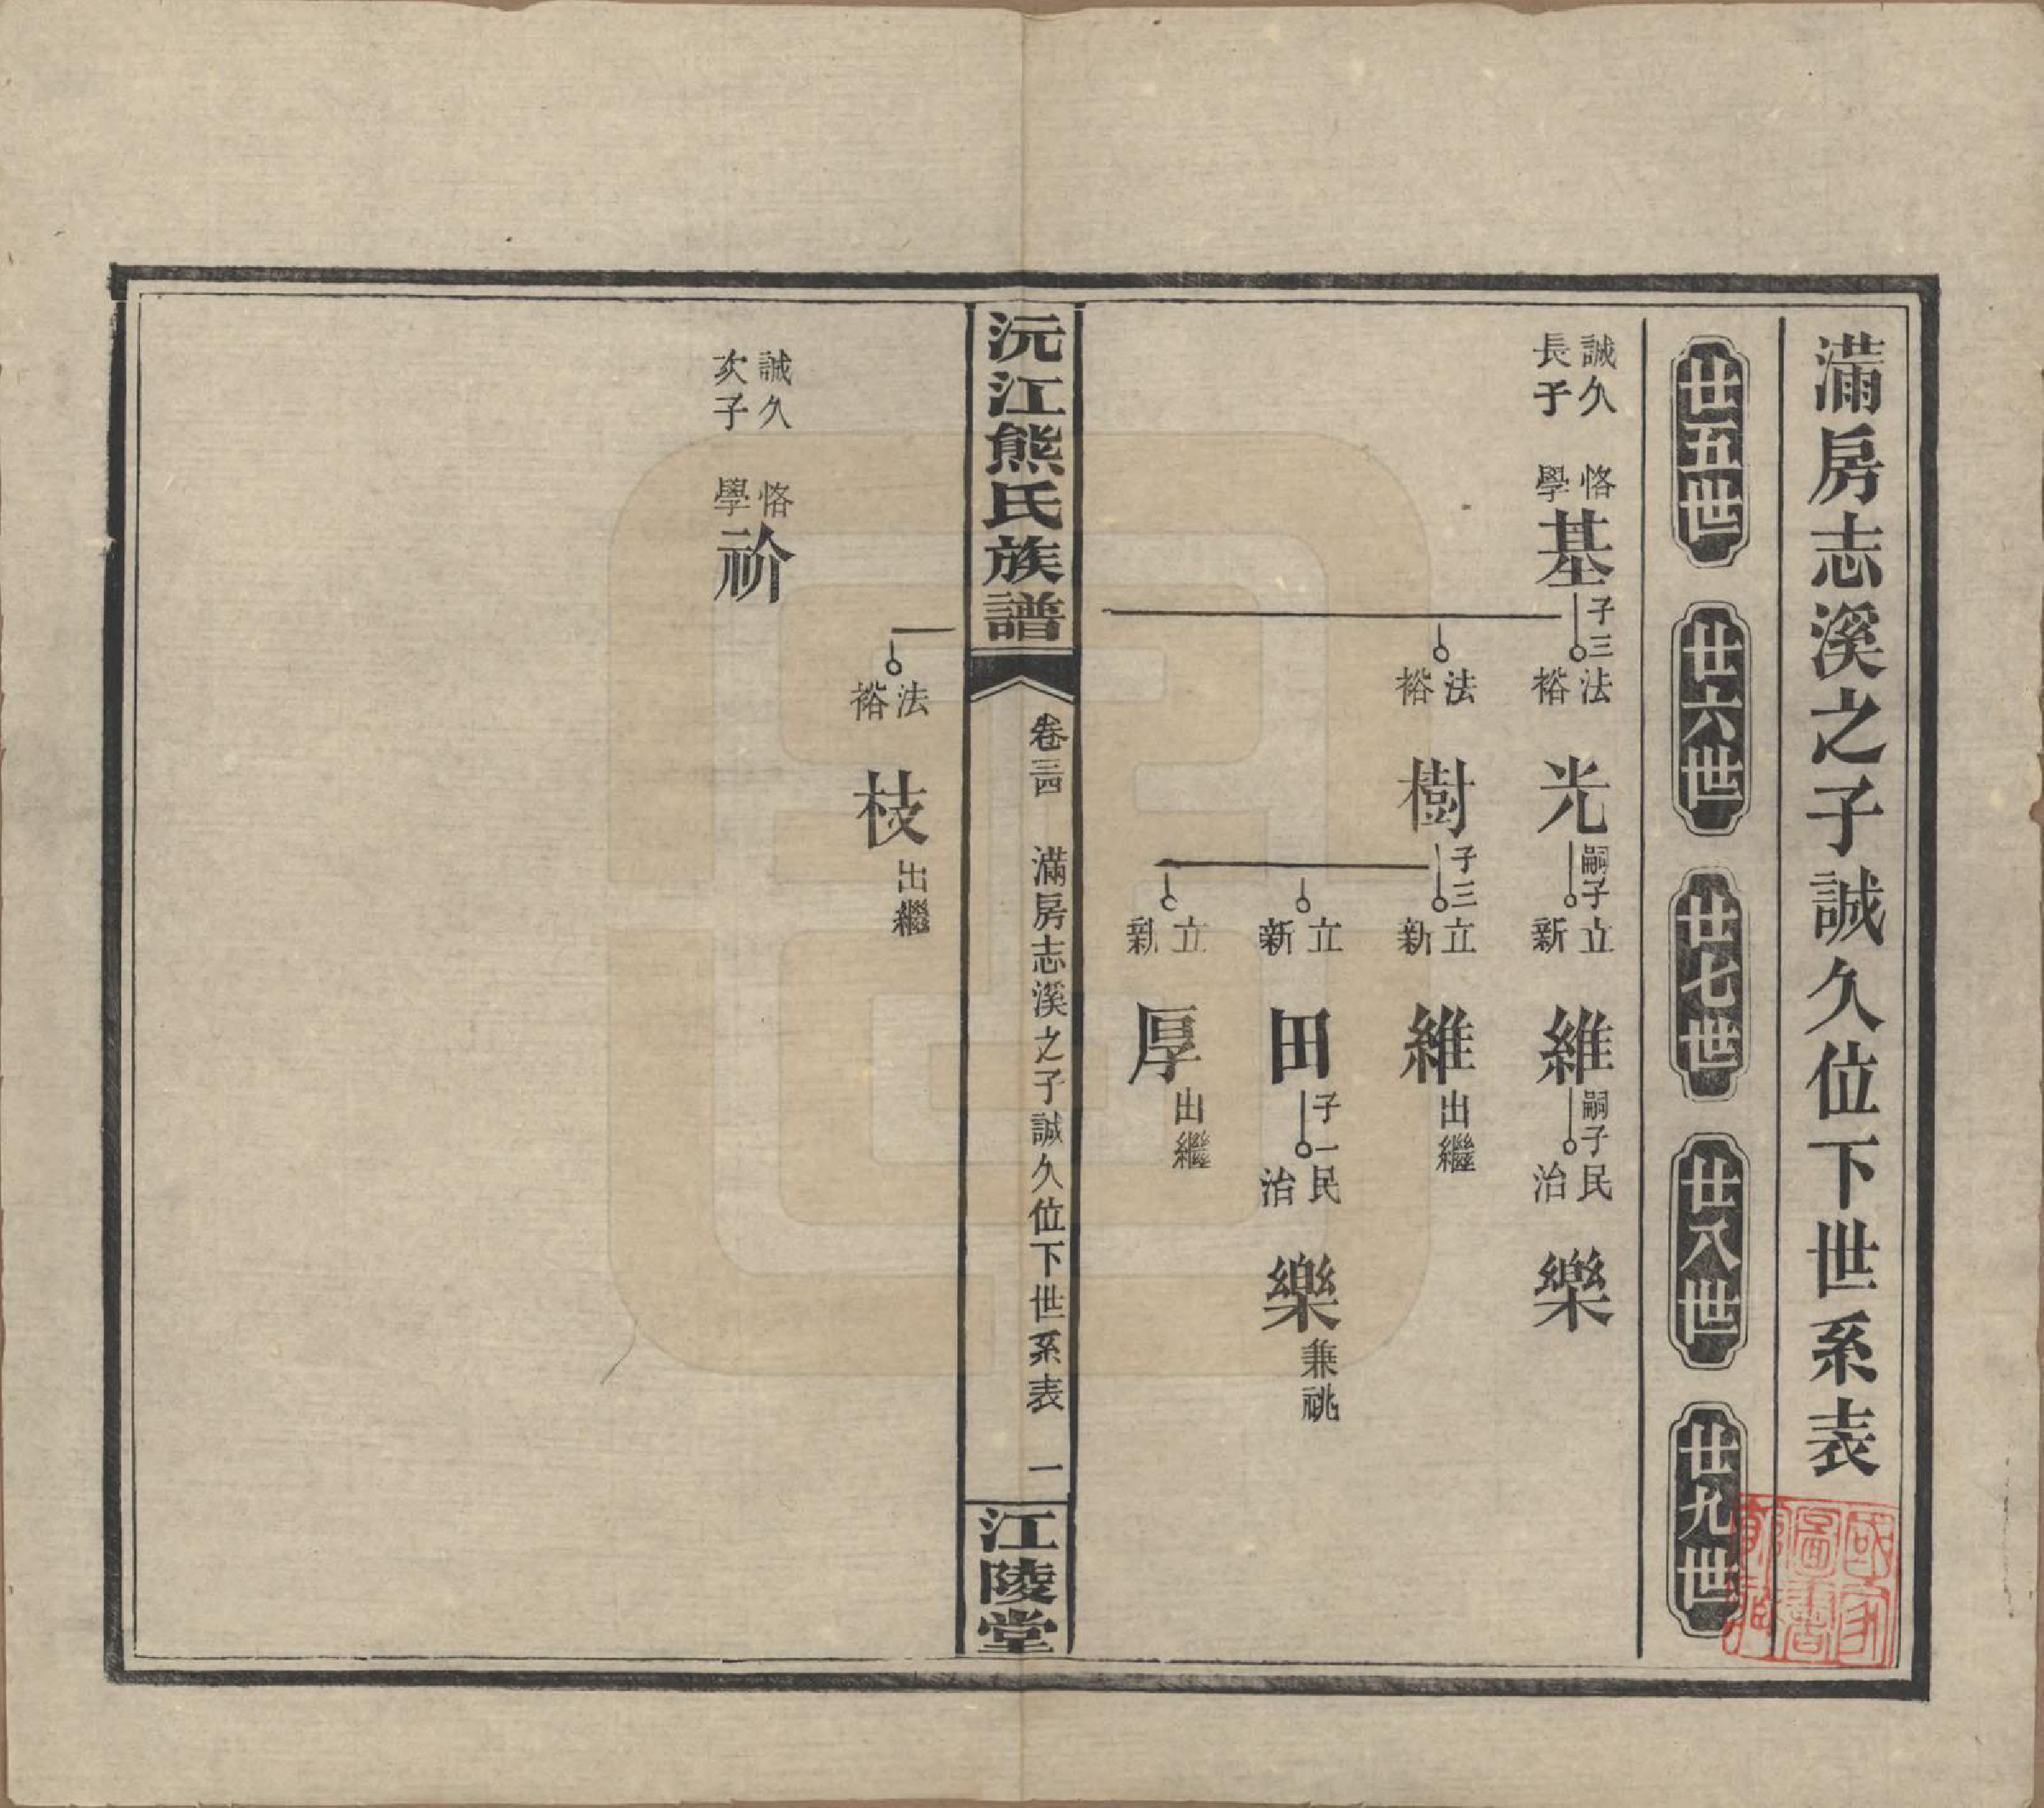 滿房志溪之子誠久位下世系表
廿五世
廿六世
廿七世
廿八世
廿九世
誠久
長子
恪學
基
子三
法裕
光
嗣子
立新
維
嗣子
民治
樂
法裕
樹
子三
立新
維
出繼
立新
田
子一
民治
樂
兼祧
立新
厚
出繼
沅江熊氏族譜
卷三四
滿房志溪之子誠久位下世系表
一
江陵堂
法裕
枝
出繼
誠久
次子
恪學
祄
國家
圖書